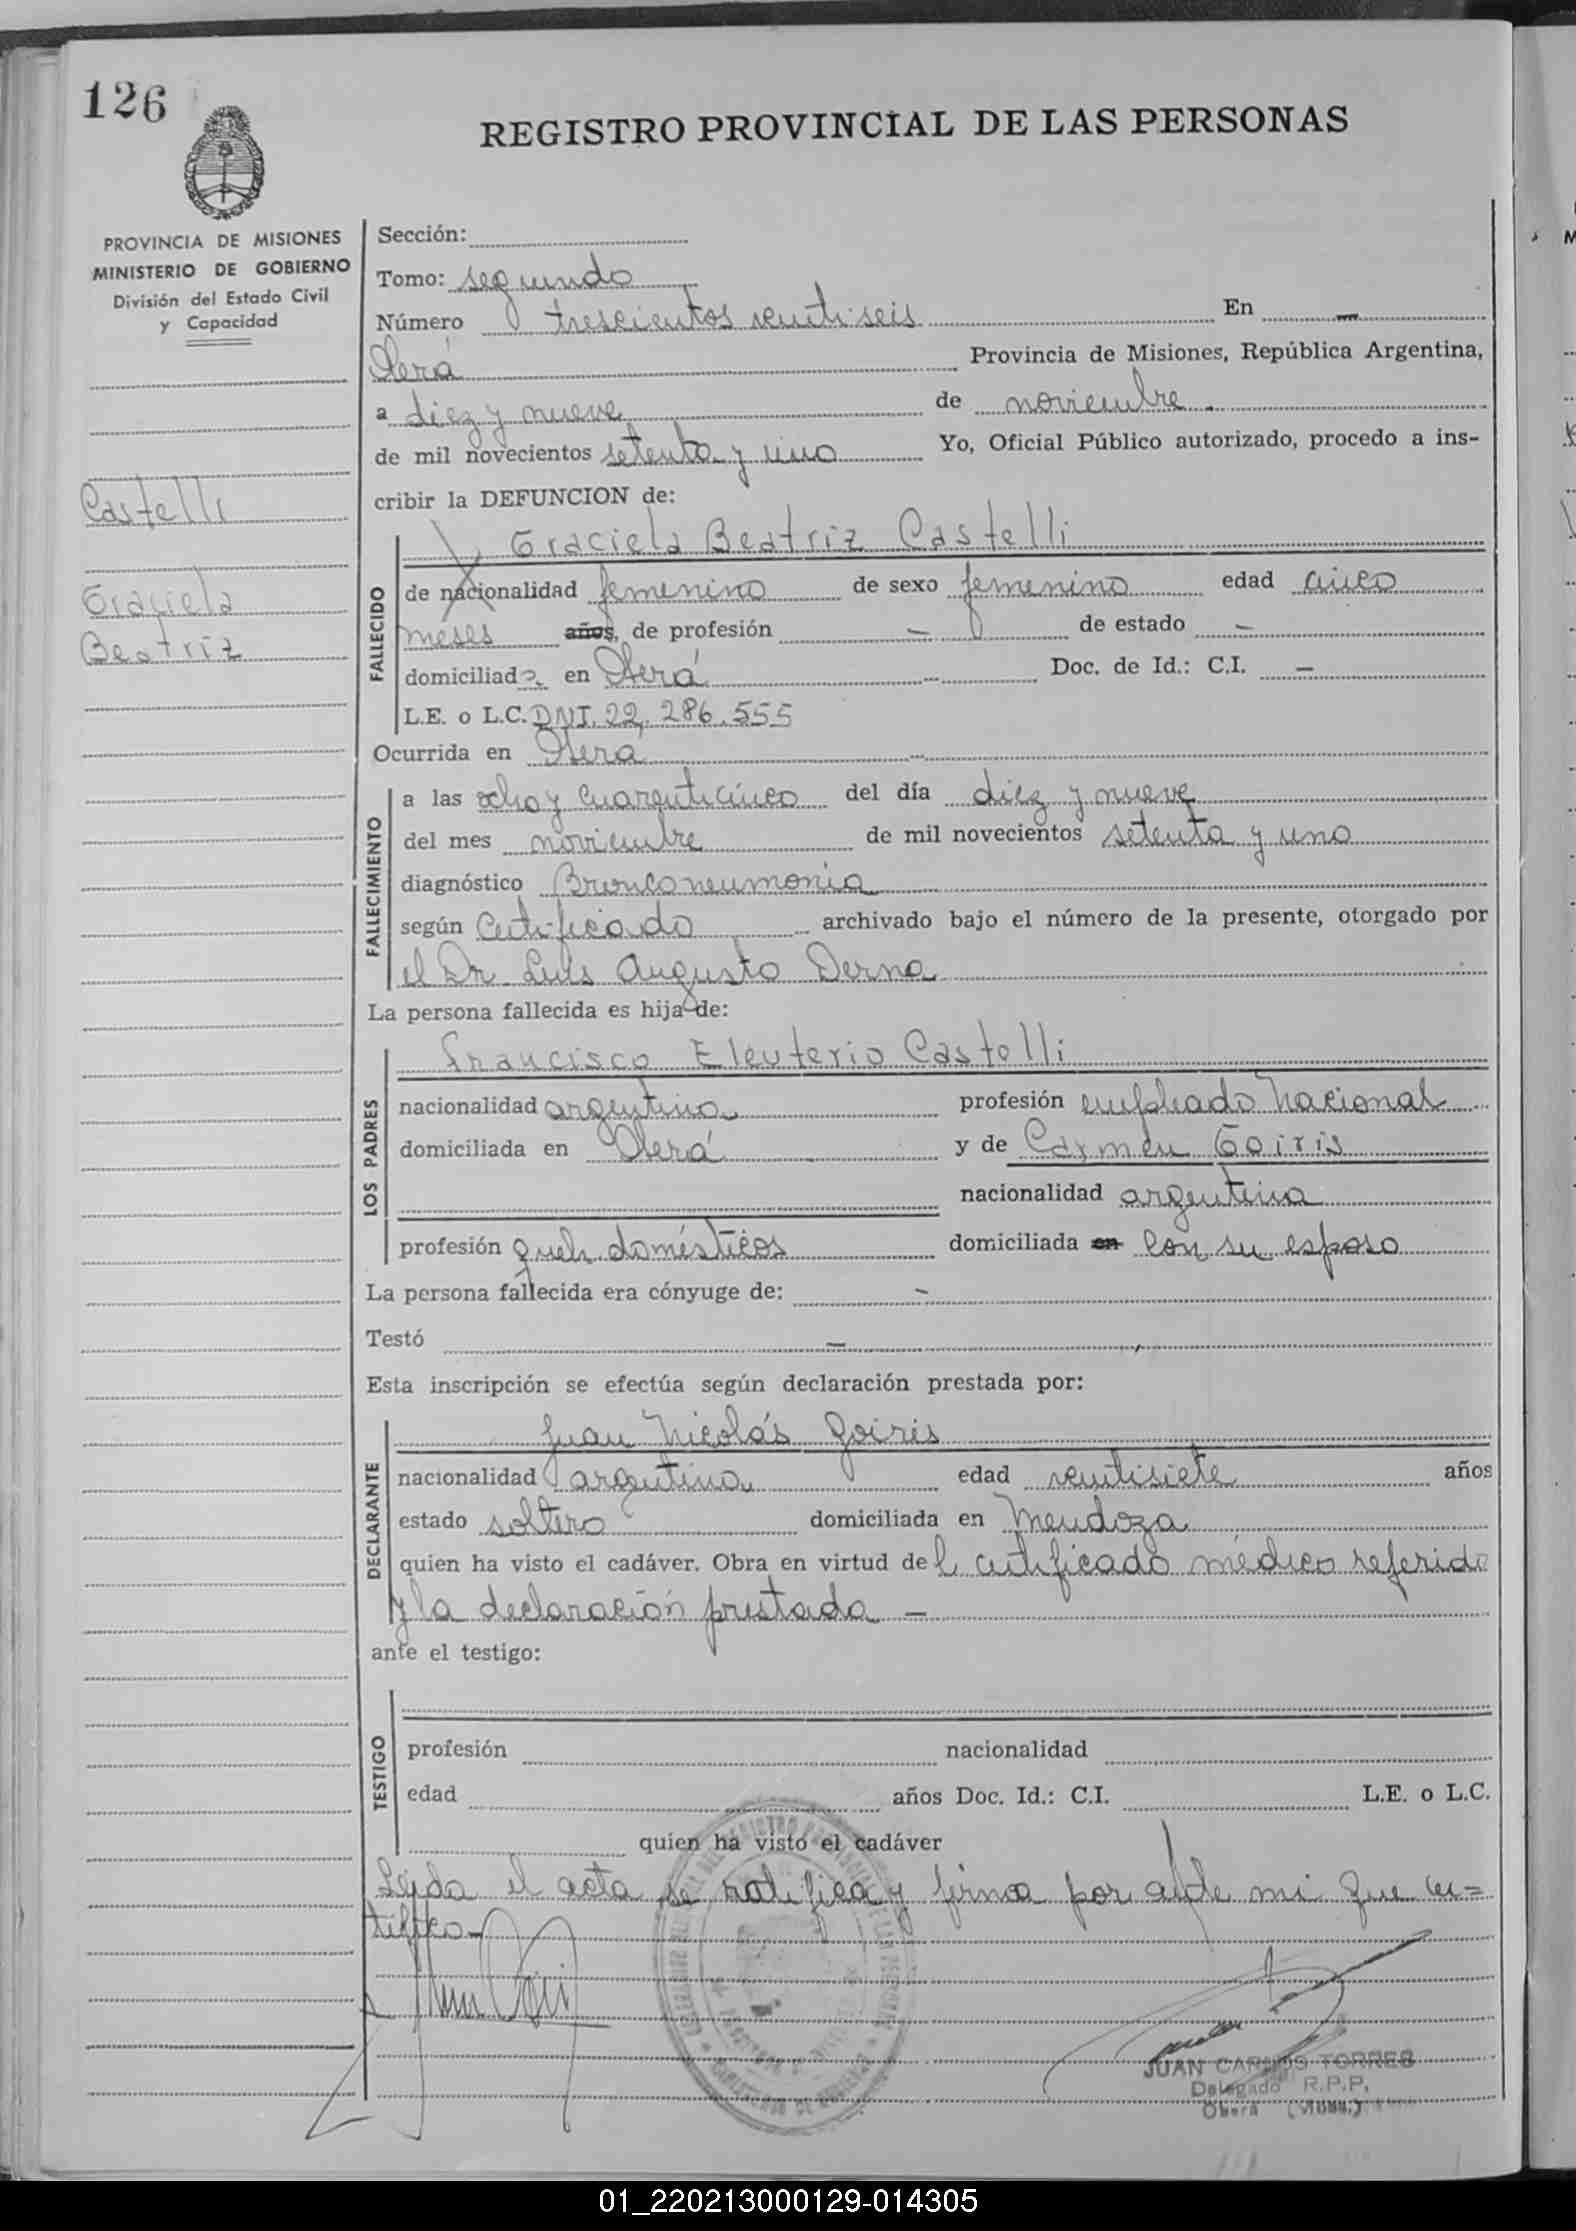 126
REGISTRO PROVINCIAL DE LAS PERSONAS
PROVINCIA DE MISIONES
MINISTERIO DE GOBIERNO
División del Estado Civil
y Capacidad
Castelli
Graciela
Beatriz
Sección:
Tomo: segundo
Número trescientos veintiseis En —
Oberá Provincia de Misiones, República Argentina,
a diez y nueve de noviembre
de mil novecientos setenta y uno Yo, Oficial Público autorizado, procedo a ins-
cribir la DEFUNCION de:
Graciela Beatriz Castelli
FALLECIDO
de nacionalidad femenino de sexo femenino edad cinco
meses años, de profesión — de estado —
domiciliada en Oberá Doc. de Id.: C.I. —
L.E. o L.C. DNI. 22.286.555
Ocurrida en Oberá
FALLECIMIENTO
a las ocho y cuarenticinco del día diez y nueve
del mes noviembre de mil novecientos setenta y uno
diagnóstico Bronconeumonia
según Certificado archivado bajo el número de la presente, otorgado por
el Dr. Luis Augusto Derna
La persona fallecida es hija de:
LOS PADRES
Francisco Eleuterio Castelli
nacionalidad argentina profesión empleado Nacional
domiciliada en Oberá y de Carmen Goiris
nacionalidad argentina
profesión queh. domésticos domiciliada en con su esposo
La persona fallecida era cónyuge de: —
Testó —
Esta inscripción se efectúa según declaración prestada por:
DECLARANTE
Juan Nicolás Goiris
nacionalidad argentina edad veintisiete años
estado soltero domiciliada en Mendoza
quien ha visto el cadáver. Obra en virtud del certificado médico referido
y la declaración prestada —
ante el testigo:
TESTIGO
profesión nacionalidad
edad años Doc. Id.: C.I. L.E. o L.C.
quien ha visto el cadáver
Leida el acta se ratifica y firma por ante mi que cer=
tifico—
JUAN CARLOS TORRES
Delegado R.P.P.
Oberá (Mnes.)
01_220213000129-014305